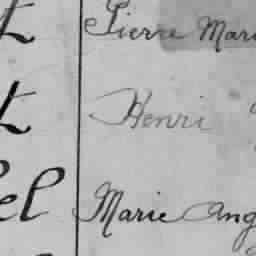 t Pierre Mari
t Henri
el Marie Ang